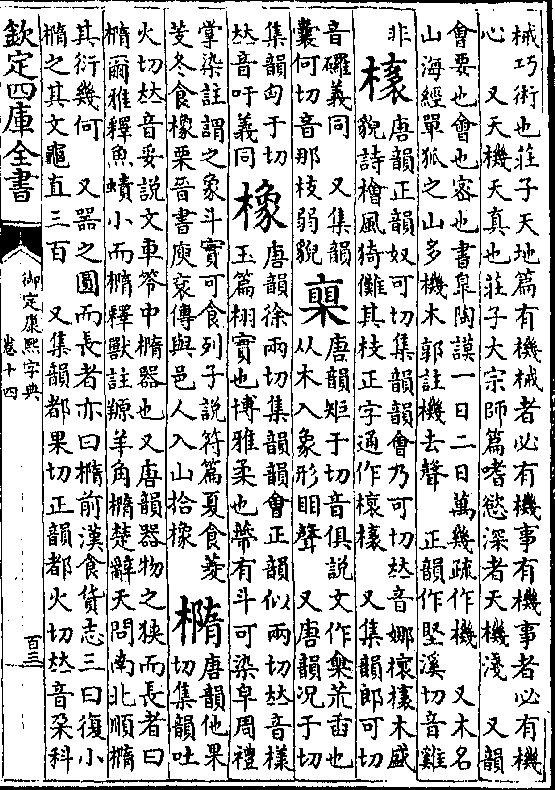 械巧術也莊子天地篇有機械者必有機事有機事者必有機
心　又天機天真也莊子大宗師篇嗜慾深者天機淺　又韻
會要也會也密也書臯陶謨一日二日萬幾疏作機　又木名
山海經單狐之山多機木郭註機去聲　正韻作堅溪切音雞
非
橠
唐韻正韻奴可切集韻韻會乃可切𠀤音娜橠橠木盛
貌詩檜風猗儺其枝正字通作橠橠　又集韻郎可切
音砢義同　又集韻
囊何切音那枝弱貌
唐韻矩于切音俱說文作茦臿也
从木入象形䀠聲　又唐韻况于切
集韻匈于切
𠀤音吁義同
橡
唐韻徐兩切集韻韻會正韻似兩切𠀤音樣
玉篇栩實也博雅柔也櫟有斗可染皁周禮
掌染註謂之象斗實可食列子說符篇夏食菱
芰冬食橡栗晉書庾衮傳與邑人入山拾橡
橢
唐韻他果
切集韻吐
火切𠀤音妥說文車笭中橢器也又唐韻器物之狹而長者曰
橢爾雅釋魚蟦小而橢釋獸註羱羊角橢楚辭天問南北順橢
其衍幾何　又器之圓而長者亦曰橢前漢食貨志三曰復小
橢之其文龜直三百　又集韻都果切正韻都火切𠀤音朶科
欽定四庫全書
御定康熙字典
卷十四
百三